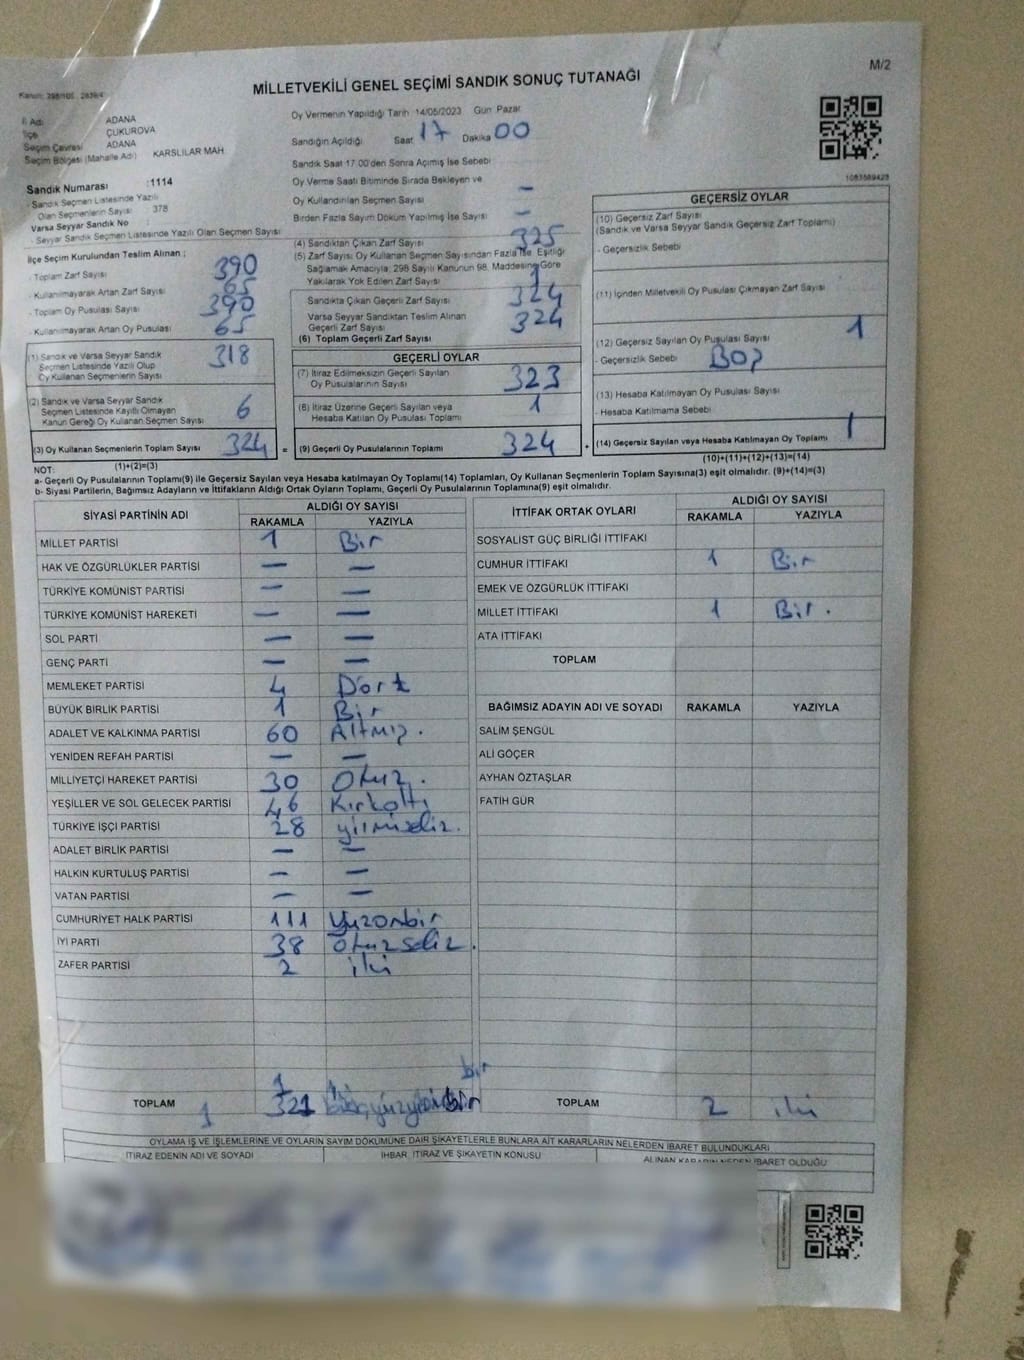 M/2
Kanun: 298/105, 2839/4
MİLLETVEKİLİ GENEL SEÇİMİ SANDIK SONUÇ TUTANAĞI
İl Adı ADANA
İlçe ÇUKUROVA
Seçim Çevresi ADANA
Seçim Bölgesi (Mahalle Adı) KARSLILAR MAH.
Sandık Numarası :1114
- Sandık Seçmen Listesinde Yazılı
Olan Seçmenlerin Sayısı : 378
Varsa Seyyar Sandık No
- Seyyar Sandık Seçmen Listesinde Yazılı Olan Seçmen Sayısı
İlçe Seçim Kurulundan Teslim Alınan ;
- Toplam Zarf Sayısı 390
- Kullanılmayarak Artan Zarf Sayısı 65
- Toplam Oy Pusulası Sayısı 390
- Kullanılmayarak Artan Oy Pusulası 65
(1) Sandık ve Varsa Seyyar Sandık
Seçmen Listesinde Yazılı Olup
Oy Kullanan Seçmenlerin Sayısı 318
(2) Sandık ve Varsa Seyyar Sandık
Seçmen Listesinde Kayıtlı Olmayan
Kanun Gereği Oy Kullanan Seçmen Sayısı 6
(3) Oy Kullanan Seçmenlerin Toplam Sayısı 324 =
(1)+(2)=(3)
Oy Vermenin Yapıldığı Tarih 14/05/2023 Gün Pazar
Sandığın Açıldığı Saat 17 Dakika 00
Sandık Saat 17.00'den Sonra Açımış İse Sebebi
Oy Verme Saati Bitiminde Sırada Bekleyen ve
Oy Kullandırılan Seçmen Sayısı –
Birden Fazla Sayım Döküm Yapılmış İse Sayısı –
(4) Sandıktan Çıkan Zarf Sayısı 325
(5) Zarf Sayısı Oy Kullanan Seçmen Sayısından Fazla İse, Eşitliği
Sağlamak Amacıyla; 298 Sayılı Kanunun 98. Maddesine Göre
Yakılarak Yok Edilen Zarf Sayısı 1
Sandıkta Çıkan Geçerli Zarf Sayısı 324
Varsa Seyyar Sandıktan Teslim Alınan
Geçerli Zarf Sayısı 324
(6) Toplam Geçerli Zarf Sayısı
GEÇERLİ OYLAR
(7) İtiraz Edilmeksizin Geçerli Sayılan
Oy Pusulalarının Sayısı 323
(8) İtiraz Üzerine Geçerli Sayılan veya
Hesaba Katılan Oy Pusulası Toplamı 1
(9) Geçerli Oy Pusulalarının Toplamı 324 +
1083589428
GEÇERSİZ OYLAR
(10) Geçersiz Zarf Sayısı
(Sandık ve Varsa Seyyar Sandık Geçersiz Zarf Toplamı)
- Geçersizlik Sebebi
(11) İçinden Milletvekili Oy Pusulası Çıkmayan Zarf Sayısı
(12) Geçersiz Sayılan Oy Pusulası Sayısı 1
- Geçersizlik Sebebi Boş
(13) Hesaba Katılmayan Oy Pusulası Sayısı
- Hesaba Katılmama Sebebi
(14) Geçersiz Sayılan veya Hesaba Katılmayan Oy Toplamı 1
(10)+(11)+(12)+(13)=(14)
NOT:
a- Geçerli Oy Pusulalarının Toplamı(9) ile Geçersiz Sayılan veya Hesaba katılmayan Oy Toplamı(14) Toplamları, Oy Kullanan Seçmenlerin Toplam Sayısına(3) eşit olmalıdır. (9)+(14)=(3)
b- Siyasi Partilerin, Bağımsız Adayların ve İttifakların Aldığı Ortak Oyların Toplamı, Geçerli Oy Pusulalarının Toplamına(9) eşit olmalıdır.
SİYASİ PARTİNİN ADI ALDIĞI OY SAYISI
RAKAMLA YAZIYLA
MİLLET PARTİSİ 1 Bir
HAK VE ÖZGÜRLÜKLER PARTİSİ — —
TÜRKİYE KOMÜNİST PARTİSİ — —
TÜRKİYE KOMÜNİST HAREKETİ — —
SOL PARTİ — —
GENÇ PARTİ — —
MEMLEKET PARTİSİ 4 Dört
BÜYÜK BİRLİK PARTİSİ 1 Bir
ADALET VE KALKINMA PARTİSİ 60 Altmış.
YENİDEN REFAH PARTİSİ — —
MİLLİYETÇİ HAREKET PARTİSİ 30 Otuz.
YEŞİLLER VE SOL GELECEK PARTİSİ 46 Kırkaltı
TÜRKİYE İŞÇİ PARTİSİ 28 yirmisekiz.
ADALET BİRLİK PARTİSİ — —
HALKIN KURTULUŞ PARTİSİ — —
VATAN PARTİSİ — —
CUMHURİYET HALK PARTİSİ 111 Yüzonbir
İYİ PARTİ 38 otuzsekiz.
ZAFER PARTİSİ 2 iki
bir
TOPLAM 1 321
İTTİFAK ORTAK OYLARI ALDIĞI OY SAYISI
RAKAMLA YAZIYLA
SOSYALİST GÜÇ BİRLİĞİ İTTİFAKI
CUMHUR İTTİFAKI 1 Bir
EMEK VE ÖZGÜRLÜK İTTİFAKI
MİLLET İTTİFAKI 1 Bir.
ATA İTTİFAKI
TOPLAM
BAĞIMSIZ ADAYIN ADI VE SOYADI RAKAMLA YAZIYLA
SALİM ŞENGÜL
ALİ GÖÇER
AYHAN ÖZTAŞLAR
FATİH GÜR
TOPLAM 2 iki
OYLAMA İŞ VE İŞLEMLERİNE VE OYLARIN SAYIM DÖKÜMÜNE DAİR ŞİKAYETLERLE BUNLARA AİT KARARLARIN NELERDEN İBARET BULUNDUKLARI
İTİRAZ EDENİN ADI VE SOYADI İHBAR, İTİRAZ VE ŞİKAYETİN KONUSU ALINAN KARARIN NEDEN İBARET OLDUĞU